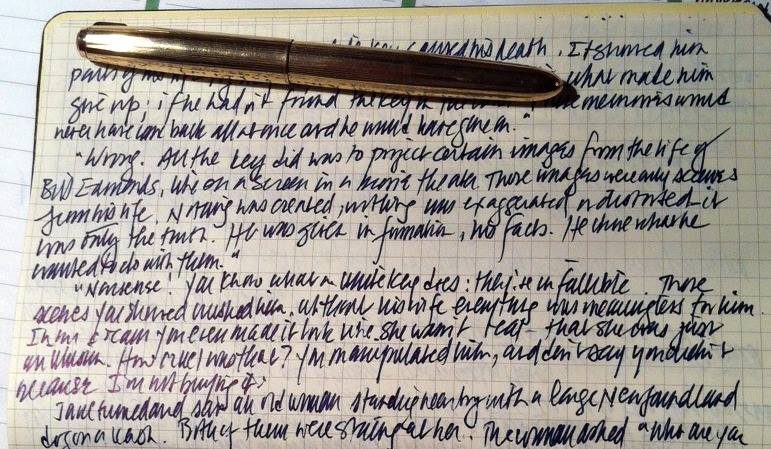 key caused his death. It showed him
parts of what made him
give up; if he hadn't found the key in memories would
never have come back all at once and he would have given."
"Wrong. All the key did was to project certain images from the life of
Bill Edmonds, like on a screen in a movie theater. Those images were only scenes
from his life. Nothing was created, nothing was exaggerated or distorted—it
was only the truth. He was given information, not facts. He chose what he
wanted to do with them."
"Nonsense! You know what a white key does: they're infallible. Those
scenes you showed crushed him. Without his wife everything was meaningless for him.
In a dream you even made it look like she wasn't real—that she was just
an illusion. How cruel was that? You manipulated him, and don't say you didn't
because I'm not buying it."
Jane turned and saw an old woman standing nearby with a large Newfoundland
dog on a leash. Both of them were staring at her. The woman asked "Who are you